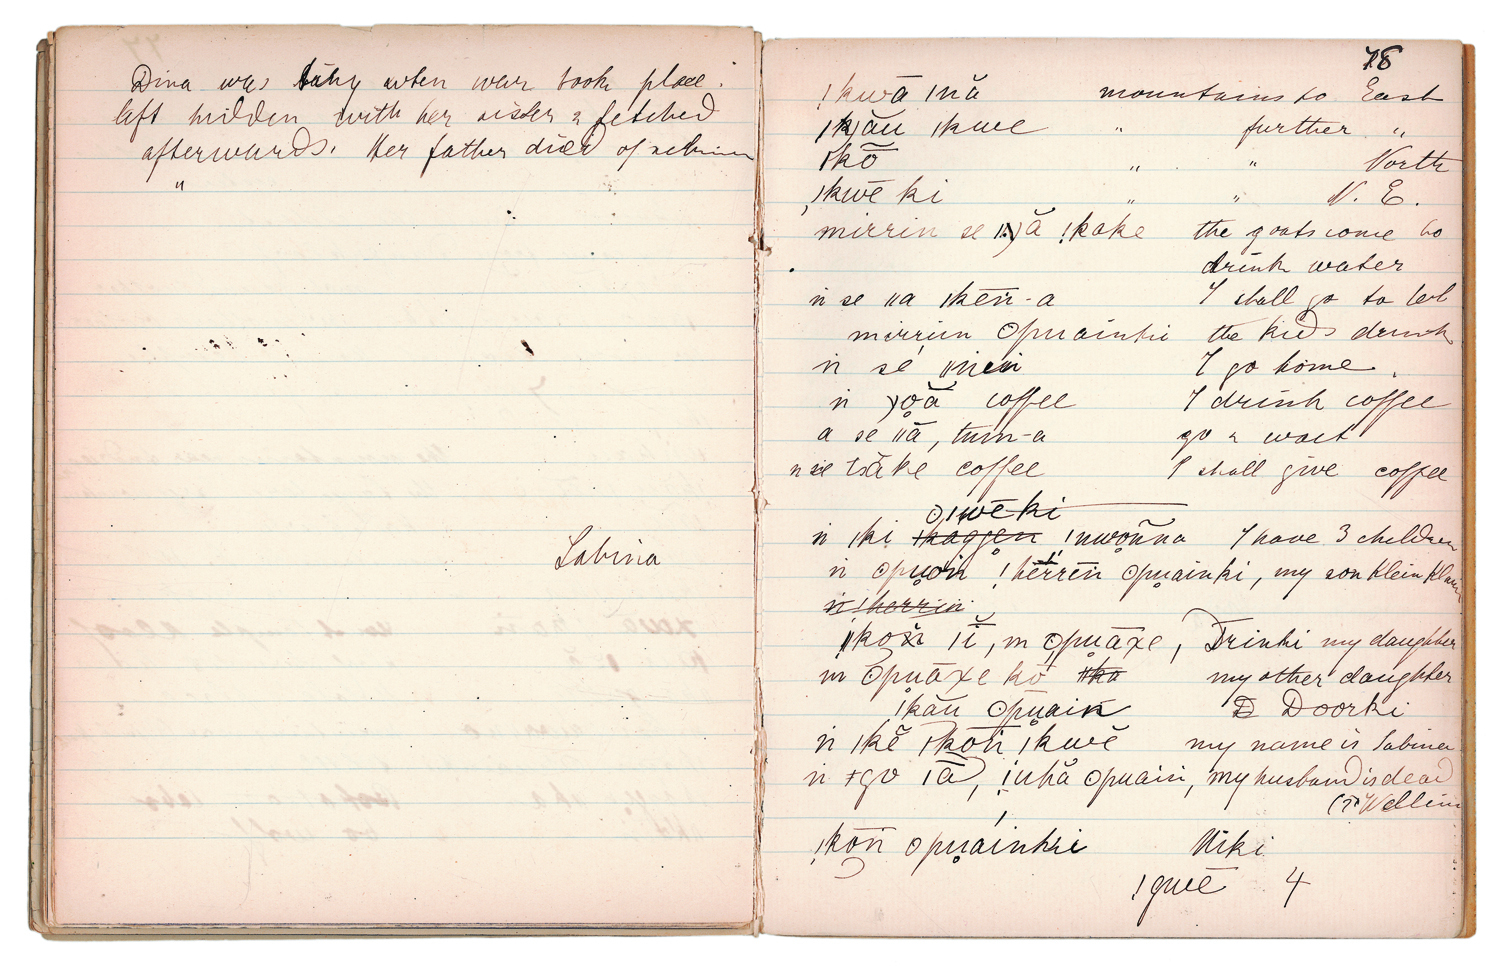 Dina was baby when war took place.
left hidden with her sister & fetched
afterwards. Her father died of
"
Sabina
78
ǃkwā ınă mountains to East
ǀkāu ıkwe " further "
ǀkō " " North
ǃkwē ki " " N. E.
mirrin se ǁχă ǃkake the goats come to
drink water
n̄ se ǁa ıkēn-a I shall go to let
mirrin ʘpuainki the kids drink
n̄ sé ǁnein I go home.
n̄ χoă coffee I drink coffee
a se ǁā, tum-a go & wait
n sie tsāke coffee I shall give coffee
ʘıwēki
n̄ ıki ǃnwonna I have 3 children
n̄ ʘpuoin ǃkerrēn ʘpuainki, my son Klein
n̄ ǃkerrin
ǁkoři ıi, n ʘpuāxe, Drinki my daughter
n ʘpuāxe ko ǁka my other daughter
ǃkāu ʘpuain D Doorki
n̄ ıkĕ ıkōn ǃkwĕ my name is Sabina
n̄ ǂgo ıā, ǃuhă ʘpuain, my husband is dead
(?) Wellim
ǃkōn ʘpuainki Uiki
ǃgwē 4